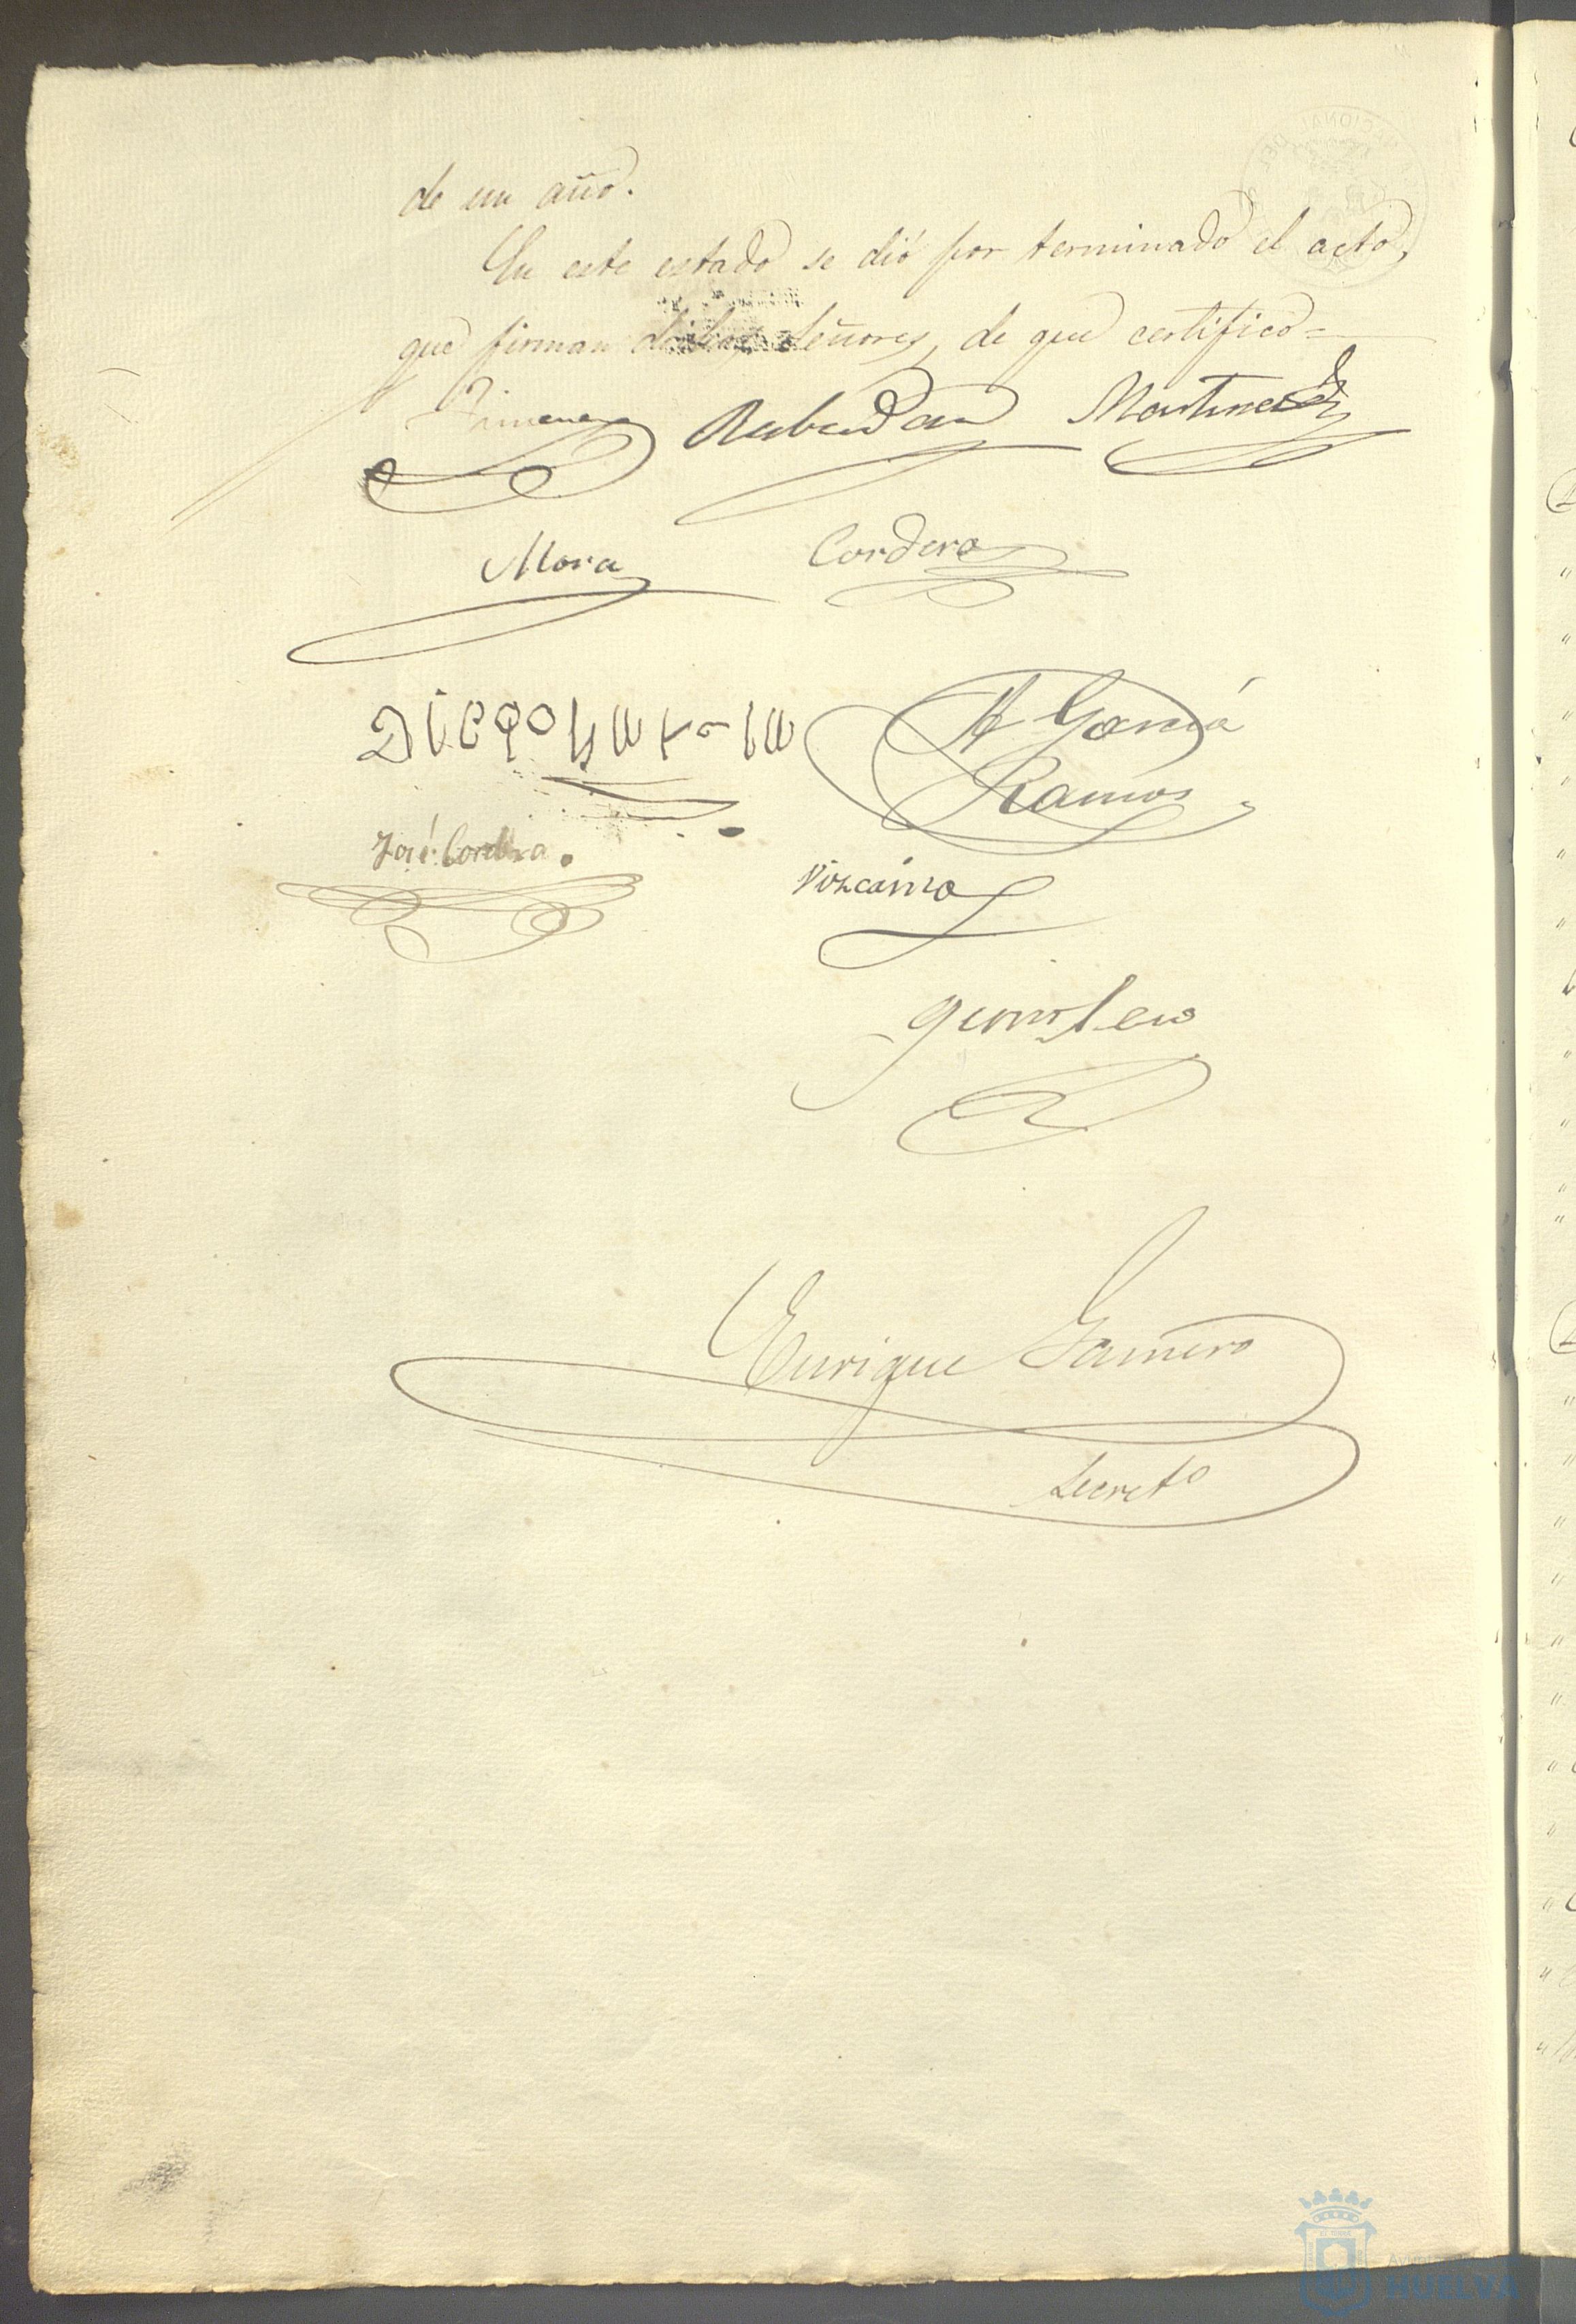 de un año.
En este estado se dió por terminado el acto,
que firman dichos Señores, de que certifico=
Jimenez Rabadan Martinez
Mora Cordero
A García
Ramos
José Cordero.
Vizcaino
Quintero
Enrique Gamero
Secretº
HUELVA